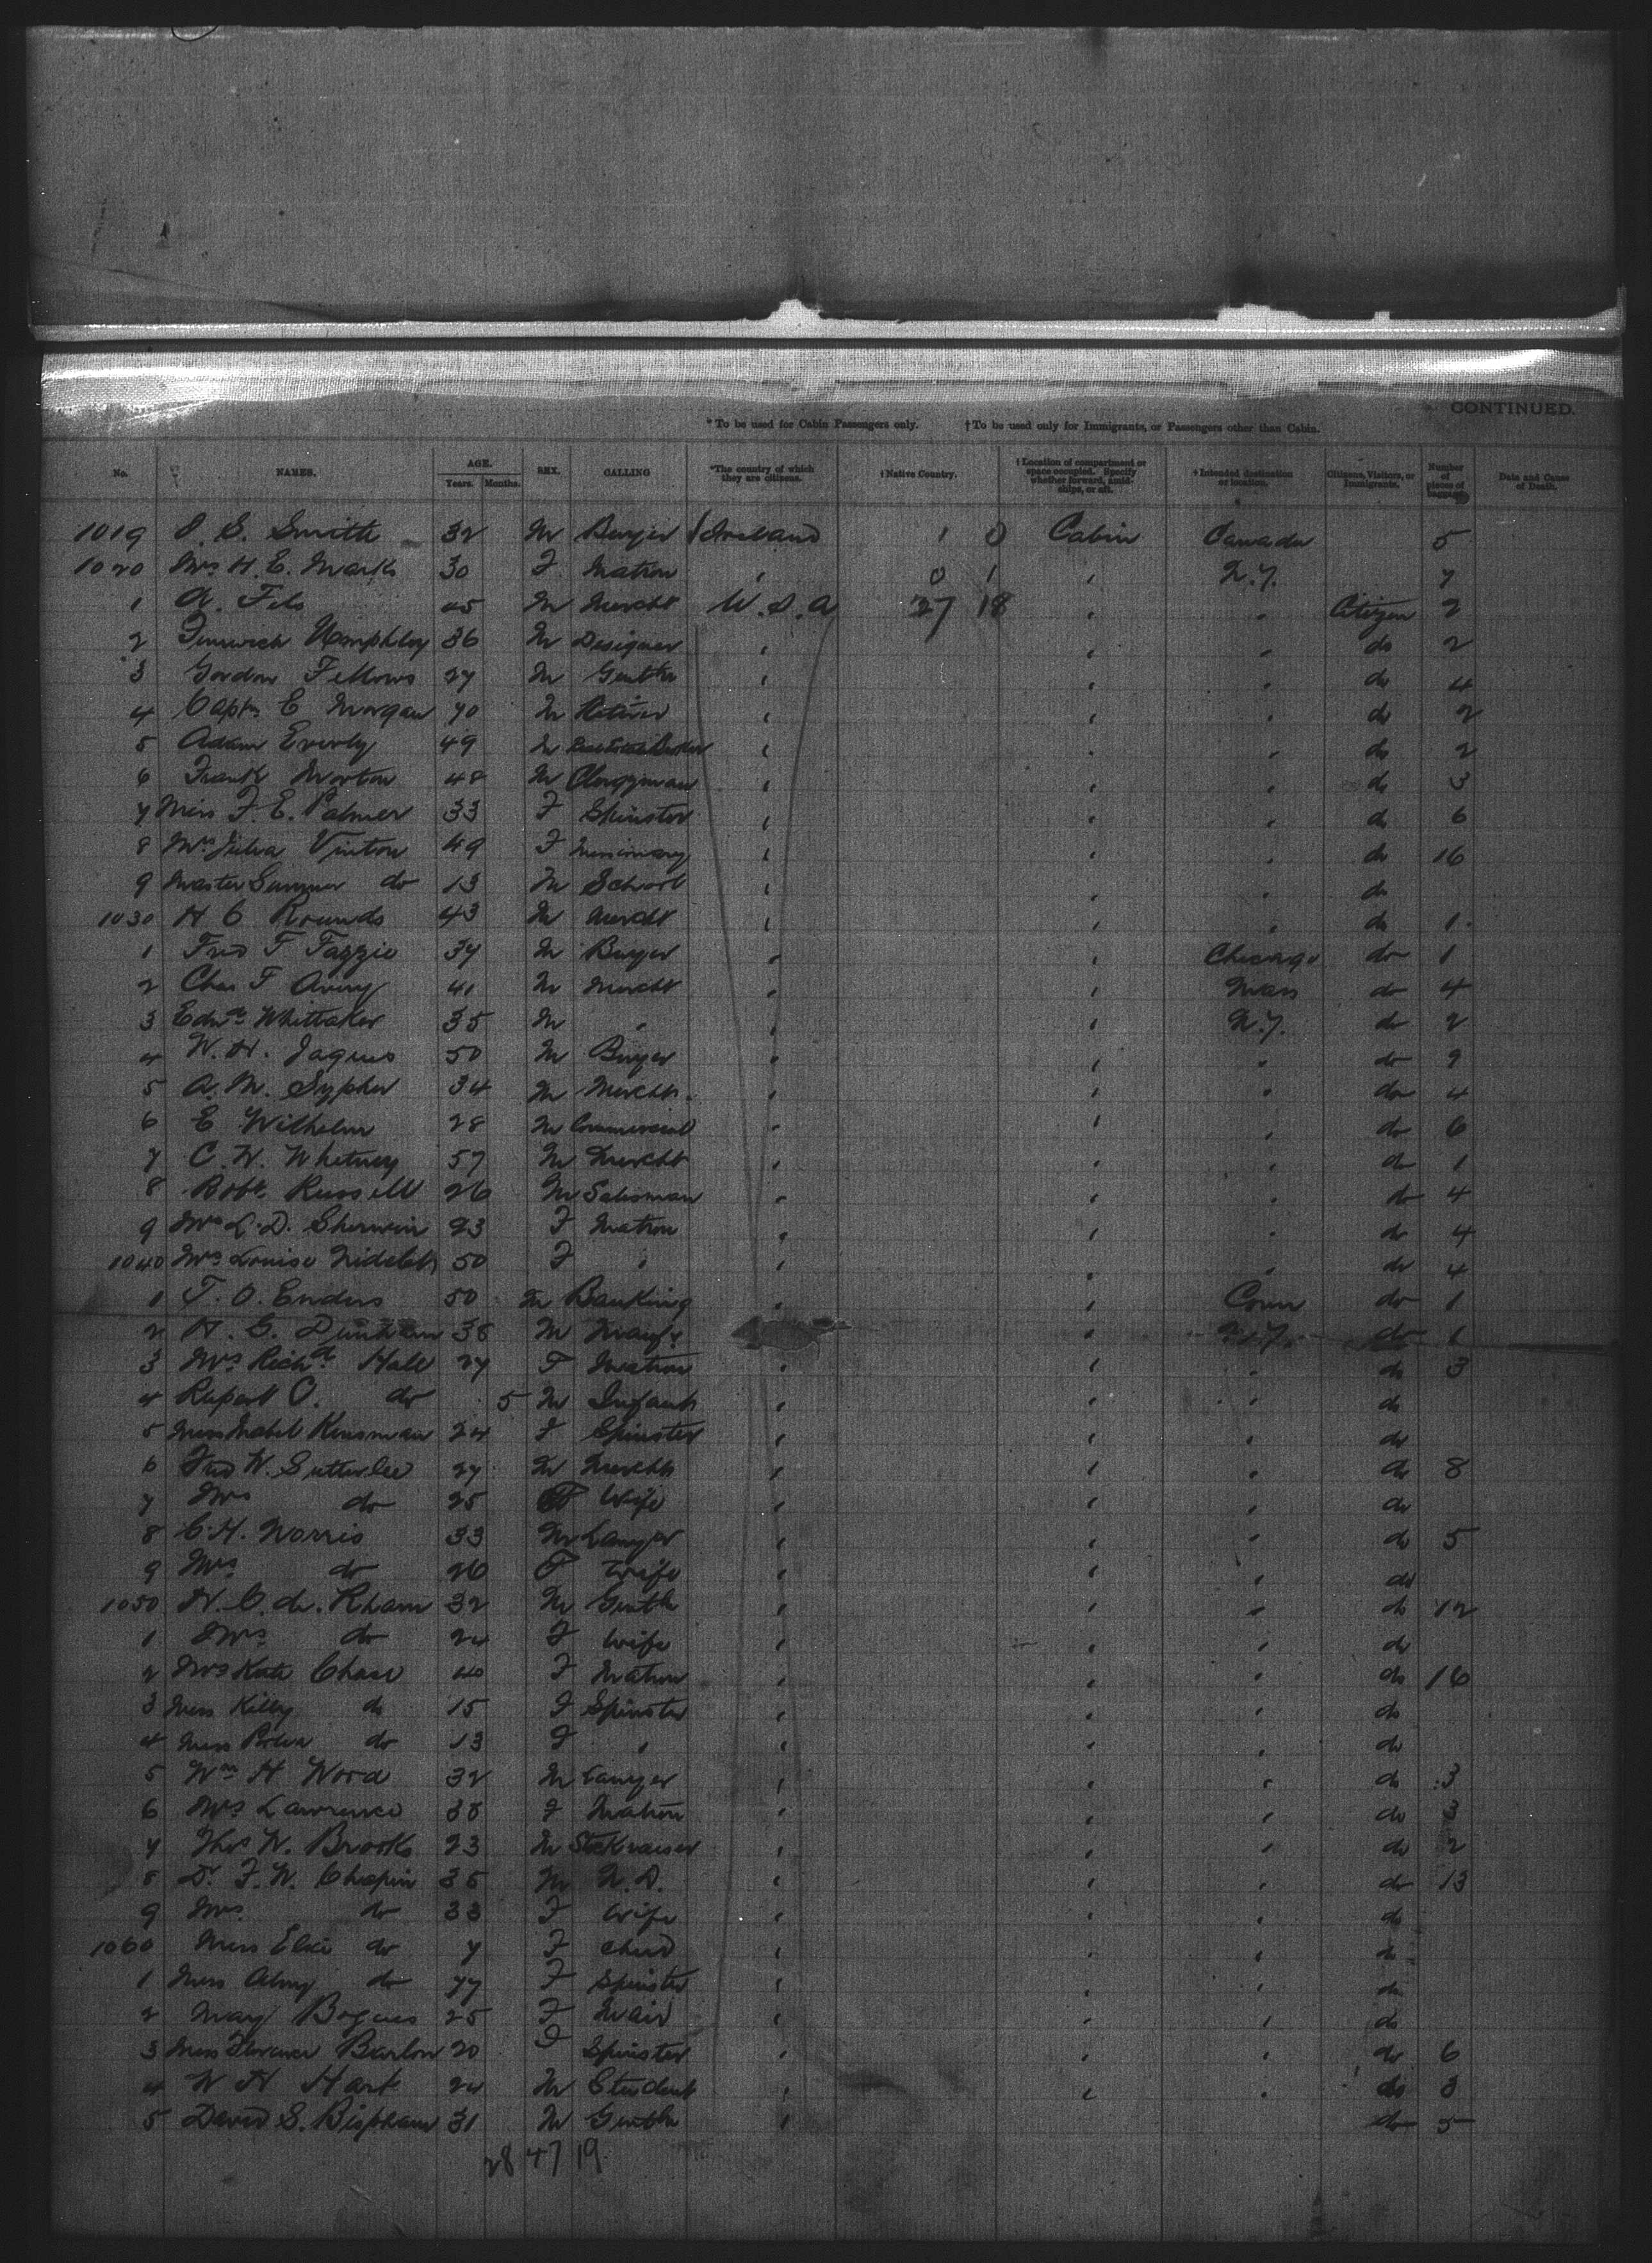 CONTINUED.
*To be used for Cabin Passengers only. †To be used only for Immigrants, or Passengers other than Cabin.
No. NAMES. AGE. Years. Months. SEX. CALLING *The country of which they are citizens. †Native Country. †Location of compartment or space occupied. Specify whether forward, amidships, or aft. †Intended destination or location. Citizens, Visitors, or Immigrants. Number of pieces of baggage Date and Cause of Death.
1019 S. Smith 32 M Buyer Ireland 1 0 Cabin Canada 5
1020 Mrs H. E. Marks 30 F Matron " 0 1 " N.Y. 7
1 A. Fels 45 M Mercht U.S.A 27 18 " " Citizen 2
2 36 M Designer " " " do 2
3 Gordon Fellows 27 M Gentln " " " do 4
4 Captn E Morgan 70 M Retired " " " do 2
5 Adam Everly 49 M Real Estate Broker " " " do 2
6 Frank Morton 48 M Clergyman " " " do 3
7 Miss F. E. Palmer 33 F Spinster " " " do 6
8 Mrs Julia Vinton 49 F Missionary " " " do 16
9 Master Sumner do 13 M School " " " do
1030 H C Rounds 43 M Mercht " " " do 1
1 Fred T 34 M Buyer " " Chicago do 1
2 Chas F Avery 41 M Mercht " " Mass do 4
3 Edwd Whittaker 35 M " " " N.Y. do 2
4 W. H. Jaques 50 M Buyer " " " do 9
5 A. M. Sypher 34 M Mercht " " " do 4
6 E Wilhelm 28 M Commercial " " " do 6
7 C. W. Whitney 57 M Mercht " " " do 1
8 Robt Russell 26 M Salesman " " " do 4
9 Mrs L. D. Sherwin 23 F Matron " " " do 4
1040 Mrs Louise 50 F " " " " do 4
1 T. O. Enders 50 M Banking " " Conn do 1
2 H. G. Dunham 38 M Manfr " N.Y. do 1
3 Mrs Richd Hall 27 F Matron " " " do 3
4 Rupert C. do 5 M Infant " " " do
5 Miss Mabel Kinsman 24 F Spinster " " " do
6 Fred W. Sutterlee 27 M Mercht " " " do 8
7 Mrs do 25 F Wife " " " do
8 C. H. Norris 33 M Lawyer " " " do 5
9 Mrs do 26 F Wife " " " do
1050 H. C. de Rham 32 M Gentln " " " do 12
1 Mrs do 24 F Wife " " " do
2 Mrs Kate Chase 40 F Matron " " " do 16
3 Miss Kitty do 15 F Spinster " " " do
4 Miss do 13 F " " " " do
5 Wm H Wood 32 M Lawyer " " " do 3
6 Mrs Lawrence 38 F Matron " " " do 3
7 Thos W. Brooks 23 M Stockraiser " " " do 2
8 Dr. F. W. Chapin 35 M M.D. " " " do 13
9 Mrs do 33 F Wife " " " do
1060 Miss Elsie do 7 F Child " " " do
1 Miss do F Spinster " " " do
2 Mary Bogues 25 F Maid " " " do
3 Miss Florence Barlow 20 F Spinster " " " do 6
4 W H Hart 24 M Student " " " do 3
5 David S. Bispham 31 M Gentln " do 5
28 47 19